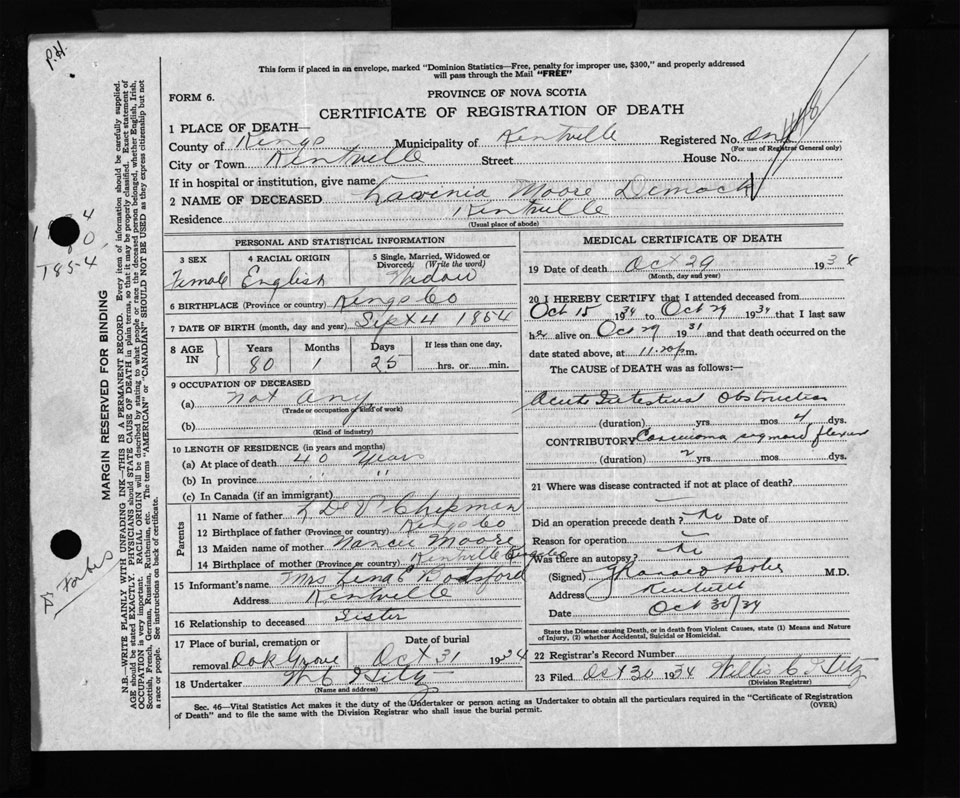 P.H.
This form if placed in an envelope, marked "Dominion Statistics—Free, penalty for improper use, $300," and properly addressed
will pass through the Mail "FREE"
FORM 6.
PROVINCE OF NOVA SCOTIA
CERTIFICATE OF REGISTRATION OF DEATH
1 PLACE OF DEATH—
County of Kings Municipality of Kentville Registered No.
(For use of Registrar General only)
City or Town Kentville Street House No.
If in hospital or institution, give name
2 NAME OF DECEASED Lavinia Moore Demock
Residence Kentville
(Usual place of abode)
PERSONAL AND STATISTICAL INFORMATION
3 SEX 4 RACIAL ORIGIN 5 Single, Married, Widowed or
Divorced (Write the word)
Female English Widow
6 BIRTHPLACE (Province or country) Kings Co
7 DATE OF BIRTH (month, day and year) Sept 4 1854
8 AGE IN Years Months Days If less than one day,
80 1 25 hrs. or min.
9 OCCUPATION OF DECEASED
(a) not any
(Trade or occupation or kind of work)
(b)
(Kind of industry)
10 LENGTH OF RESIDENCE (in years and months)
(a) At place of death 40 years
(b) In province " "
(c) In Canada (if an immigrant)
Parents
11 Name of father L De V Chipman
12 Birthplace of father (Province or country) Kings Co
13 Maiden name of mother Nancie Moore
14 Birthplace of mother (Province or country) Kentville Kings Co
15 Informant's name Mrs Lena Rodsford
Address Kentville
16 Relationship to deceased Sister
17 Place of burial, cremation or Date of burial
removal Oak Grove Oct 31 1934
18 Undertaker W C Hiltz
(Name and address)
MEDICAL CERTIFICATE OF DEATH
19 Date of death Oct 29 1934
(Month, day and year)
20 I HEREBY CERTIFY that I attended deceased from
Oct 15 1934 to Oct 29 1934 that I last saw
her alive on Oct 29 1931 and that death occurred on the
date stated above, at 11.20 p m.
The CAUSE of DEATH was as follows:—
Acute Intestinal Obstruction
(duration) yrs. mos 4 dys.
CONTRIBUTORY Carcinoma sigmoid flexure
(duration) 2 yrs. mos. dys.
21 Where was disease contracted if not at place of death?
Did an operation precede death? No Date of
Reason for operation
Was there an autopsy? No
(Signed) M.D.
Address Kentville
Date Oct 30/34
State the Disease causing Death, or in death from Violent Causes, state (1) Means and Nature
of Injury, (2) whether Accidental, Suicidal or Homicidal.
22 Registrar's Record Number
23 Filed Oct 30 1934 Willis C Hiltz
(Division Registrar)
Sec. 46—Vital Statistics Act makes it the duty of the Undertaker or person acting as Undertaker to obtain all the particulars required in the "Certificate of Registration
of Death" and to file the same with the Division Registrar who shall issue the burial permit. (OVER)
MARGIN RESERVED FOR BINDING
N.B.—WRITE PLAINLY WITH UNFADING INK—THIS IS A PERMANENT RECORD. Every item of information should be carefully supplied.
AGE should be stated EXACTLY. PHYSICIANS should STATE CAUSE OF DEATH in plain terms, so that it may be properly classified. Exact statement of
OCCUPATION is very important. RACIAL ORIGIN will be described by stating to what people or race the deceased person belonged, whether English, Irish,
Scottish, French, German, Russian, Ruthenian, etc. The terms "AMERICAN" or "CANADIAN" SHOULD NOT BE USED as they express citizenship but not
a race or people. See instructions on back of certificate.
1854
Dr Forbes